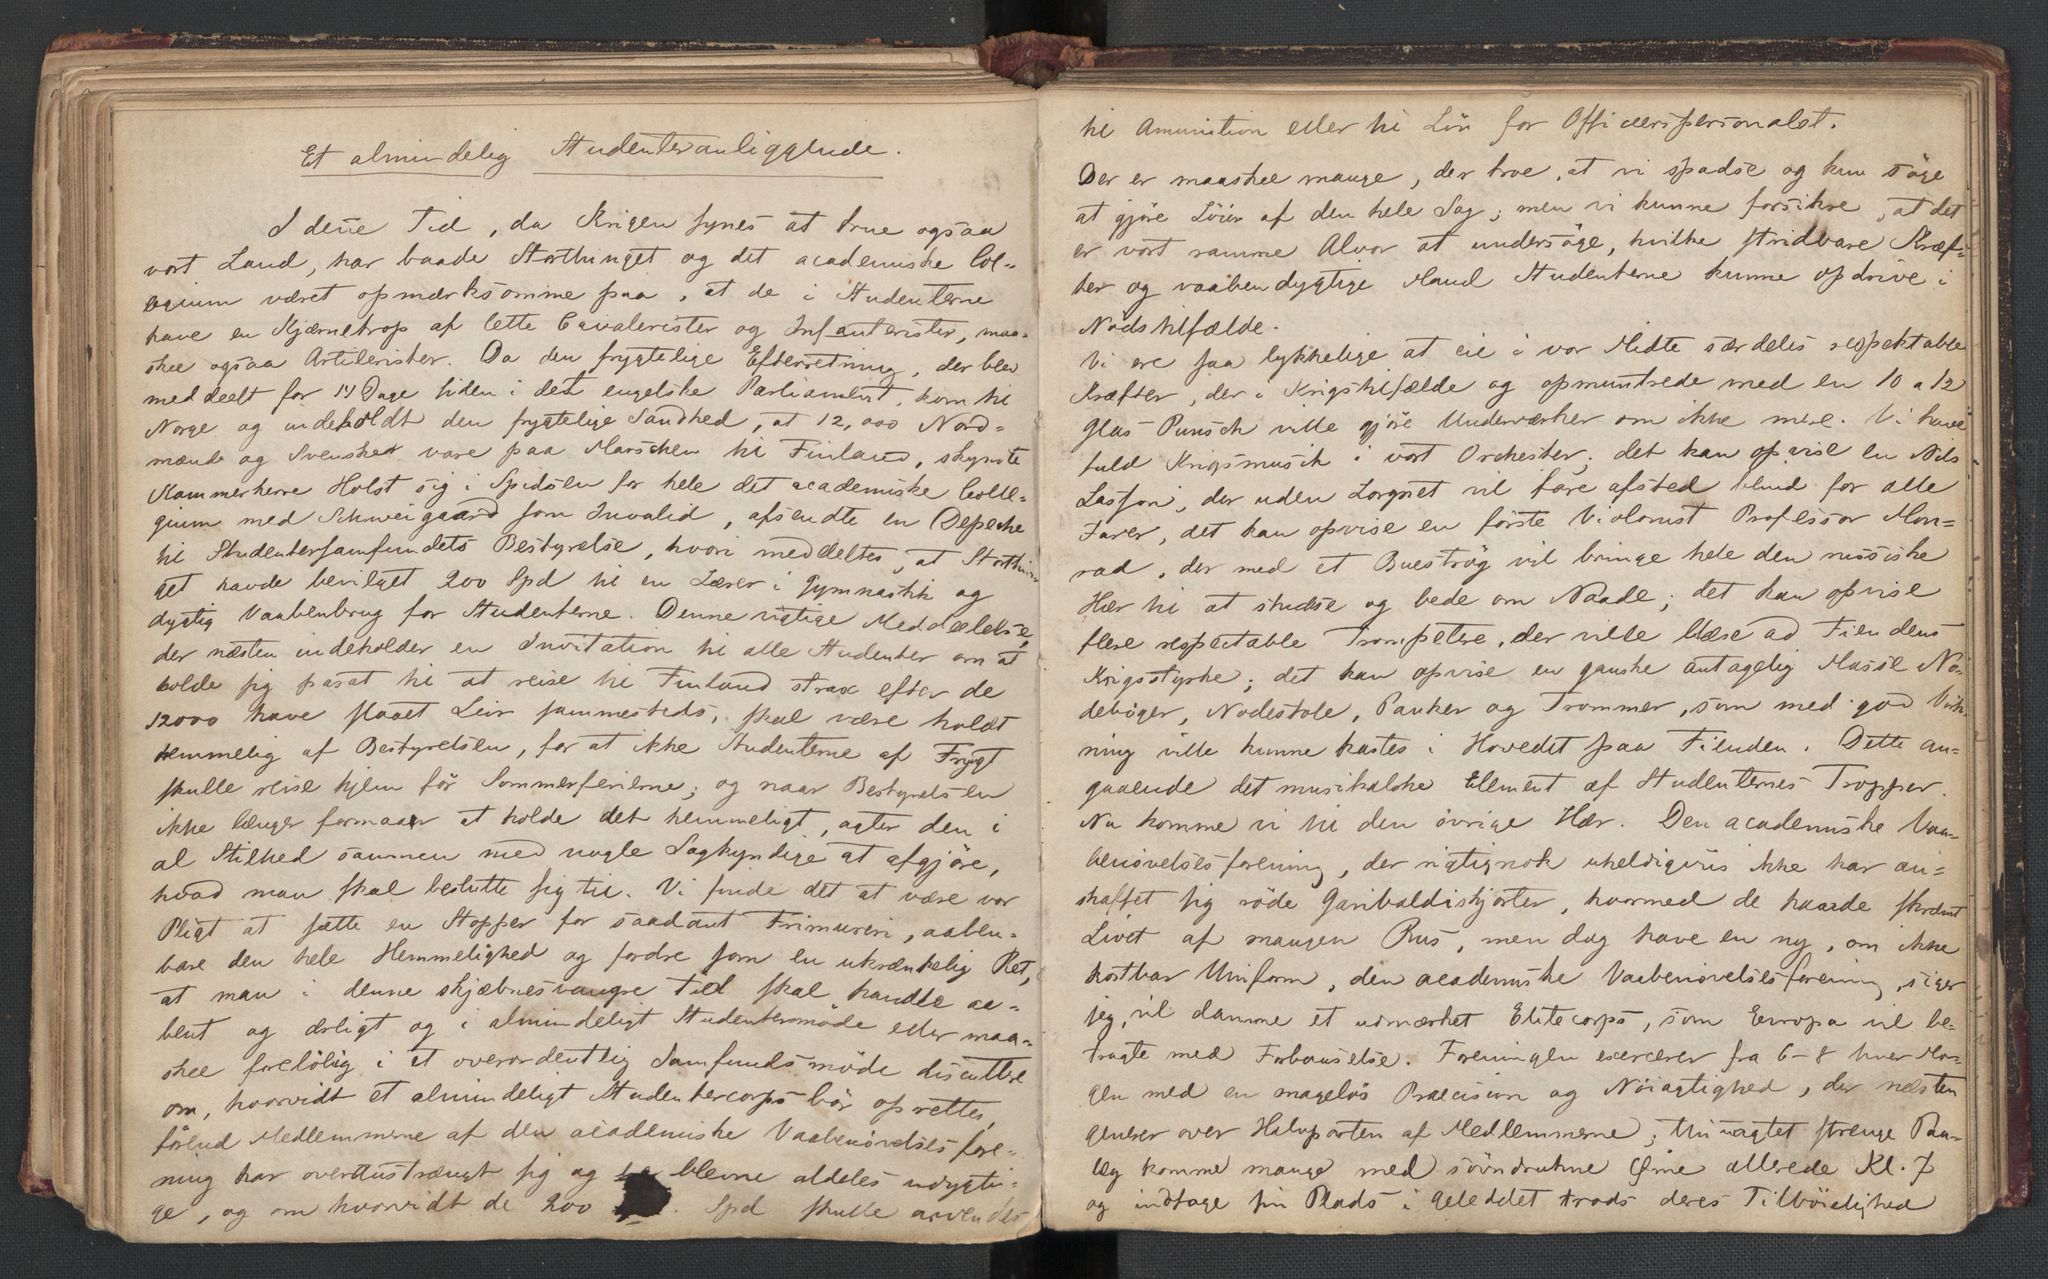 Et almindelig Studenteranliggende.
I denne Tid, da Krigen synes at true ogsaa
vort Land, har baade Storthinget og det academiske Col-
legium været opmærksomme paa, at de i Studenterne
have en Kjærnetrop af lette Cavalerister og Infanterister, maa-
skee ogsaa Artilerister. Da den frygtelige Efterretning, der blev
meddeelt for 14 Dage siden i det engelske Parliament, kom til
Norge og indeholdt den frygtelige Sandhed, at 12,000 Nord-
mænd og Svenske vare paa Marschen til Finland, skyndte
Kammerherre Holst sig i Spidsen for hele det academiske Colle-
gium med Schweigaard som Invalid, afsendte en Depeche
til Studentersamfundets Bestyrelse, hvori meddeltes, at Storthin-
get havde bevilget 200 Spd til en Lærer i Gymnastik og
dygtig Vaabenbrug for Studenterne. Denne vigtige Meddelelse,
der næsten indeholder en Invitation til alle Studenter om at
holde sig parat til at reise til Finland strax efter de
12000 have slaaet Leir sammesteds, skal være holdt
hemmelig af Bestyrelsen, for at ikke Studenterne af Frygt
skulle reise hjem før Sommerferierne; og naar Bestyrelsen
ikke længer formaar at holde det hemmeligt, agter den i
al Stilhed sammen med nogle Sagkyndige at afgjöre,
hvad man skal beslutte sig til. Vi finde det at være vor
Pligt at sætte en Stopper for saadant Frimureri, aaben-
bare den hele Hemmelighed og fordre som en ukrænkelig Ret,
at man i denne skjæbnesvangre Tid skal handle aa-
bent og ærligt og i almindeligt Studentermöde eller maa-
skee forelöbig i et overordentlig Samfundsmöde discuttere
om, hvorvidt et almindeligt Studentercorps bör oprettes,
förend Medlemmerne af den academiske Vaabenövelsesfore-
ning har overanstrængt sig og blevne aldeles udygti-
ge, og om hvorvidt de 200 Spd skulle anvendes
til Amunition eller til Lön for Officerspersonalet.
Der er maaskee mange, der troe, at vi spadse og kun söge
at gjöre Löier af den hele Sag; men vi kunne forsikre, at det
er vort ramme Alvor at undersöge, hvilke stridbare Kræf-
ter og vaabendygtige Mænd Studenterne kunne opdrive i
Nödstilfælde.
Vi ere saa lykkelige at eie i vor Midte særdeles respektable
Kræfter, der i Krigstilfælde og opmuntrede med en 10 a 12
Glas Punsch ville gjöre Underværker om ikke mere. Vi have
fuld Krigsmusik i vort Orchester; det kan opvise en Nils
Lasson, der uden Lorgnet vil fare afsted blind for alle
Farer, det kan opvise en förste Violonist Professor Mon-
rad, der med et Bueströg vil bringe hele den russiske
Hær til at studse og bede om Naade; det kan opvise
flere respectable Trompetere, der ville blæse ad Fiendens
Krigsstyrke; det kan opvise en ganske antagelig Masse No-
deböger, Nodestole, Pauker og Trommer, som med god Virk-
ning ville kunne kastes i Hovedet paa Fienden. Dette an-
gaaende det musikalske Element af Studenternes Tropper.
Nu komme vi til den övrige Hær. Den academiske Vaa-
benövelsesforening, der rigtignok uheldigviis ikke har an-
skaffet sig röde Garibaldiskjorter, hvormed de havde skræmt
Livet af mangen Rus, men dog have en ny, om ikke
kostbar Uniform, den academiske Vaabenövelsesforening, siger
jeg, vil danne et udmærket Elitecorps, som Europa vil be-
tragte med Forbauselse. Foreningen exercerer fra 6-8 hver Mor-
gen med en magelös Præcision og Nöiagtighed, der næsten
generer over Halvparten af Medlemmerne; Uanagtet strenge Paa-
læg komme mange med sövndrukne Öine allerede Kl. 7
og indtage sin Plads i Geleddet trods deres Tilböielighed